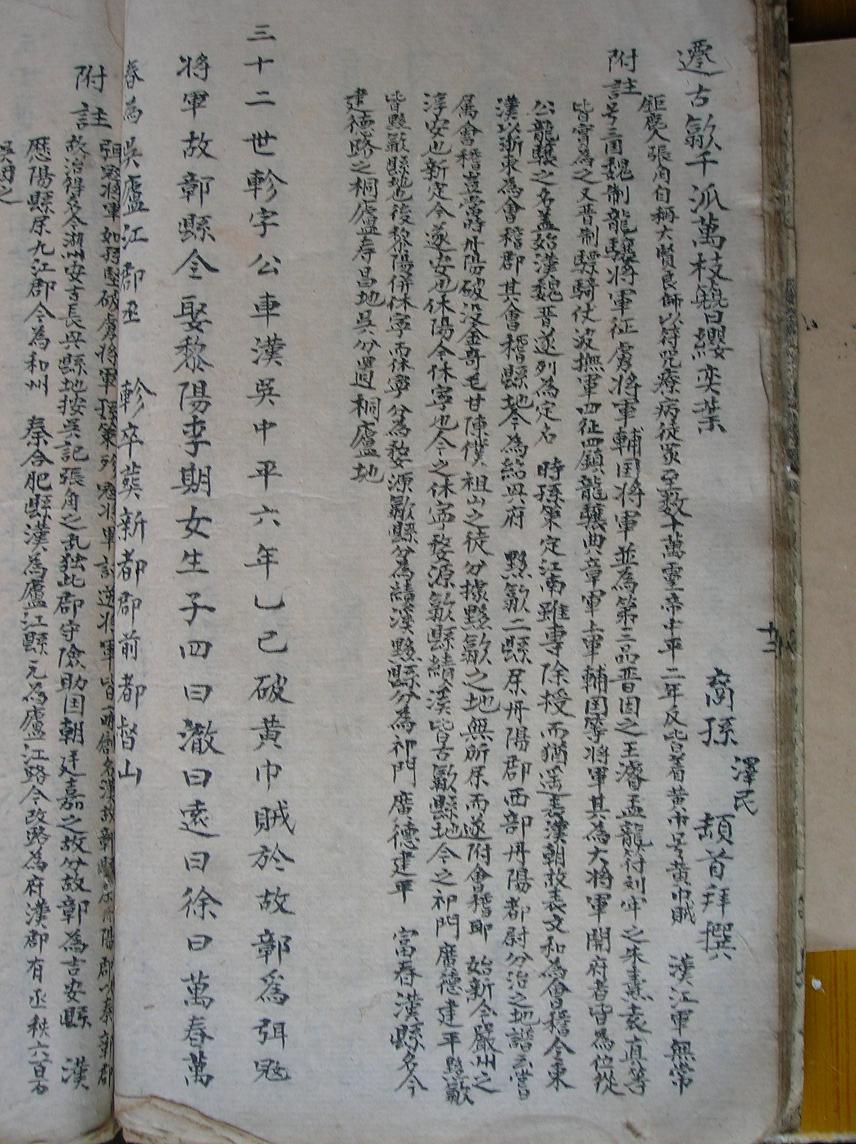 遷古歙千派萬枝簪纓奕葉
裔孫 澤民 頓首拜撰
鉅鹿人張角自稱大賢良師以符咒療病徒眾至数十萬靈帝中平二年反皆着黄巾号黄巾賊 漢江軍無常
附註
号三囯魏制龍驤将軍征虜将軍輔囯将軍並為第三品晋因之王濬孟龍符刘牢之朱
皆嘗為之又晋制驃騎伏波撫軍四征四鎮龍驤典章軍上軍輔囯等将軍其為大将軍開府者皆為位從
公龍驤之名盖始漢魏晋遂列為定名 時孫策定江南雖專除授而猶遥表漢朝故表文和為會稽令東
漢以浙東為會稽郡其會稽縣地今為紹興府 黟歙二縣原丹陽郡西部丹陽都尉分治之地
属會稽豈當時丹陽破没金奇毛甘陳僕祖山之徒分據黟歙之地無所属而遂附會稽耶 始新今嚴州之
淳安也新定今遂安也休陽今休寧也今之休寧婺源歙縣績溪皆古歙縣地今之祁門廣德建平黟歙
皆黟歙縣地也後黎陽併休寧而休寧分為婺源歙縣分為績溪黟縣分為祁門廣德建平 富春漢縣名今
建德路之桐廬寿昌地吳分置 桐廬地
三十二世軫字公車漢吳中平六年乚已破黄巾賊於故鄣為弭冦
将軍故鄣縣令娶黎陽李期女生子四曰澈曰遠曰徐曰萬春萬
春為吳廬江郡丞 軫卒葬新都郡前都督山
附註
弭冦将軍如孫堅破虜将軍孫策殄冦将軍討逆将軍皆
故治得名今湖州安吉長興縣地按吳記張角之乱独此郡守險助囯朝廷嘉之故分故鄣為吉安縣 漢
歷陽縣属九江郡今為和州 秦合肥縣漢為廬江縣元為廬江路今改路為府漢郡有丞秩六百石
吳因之